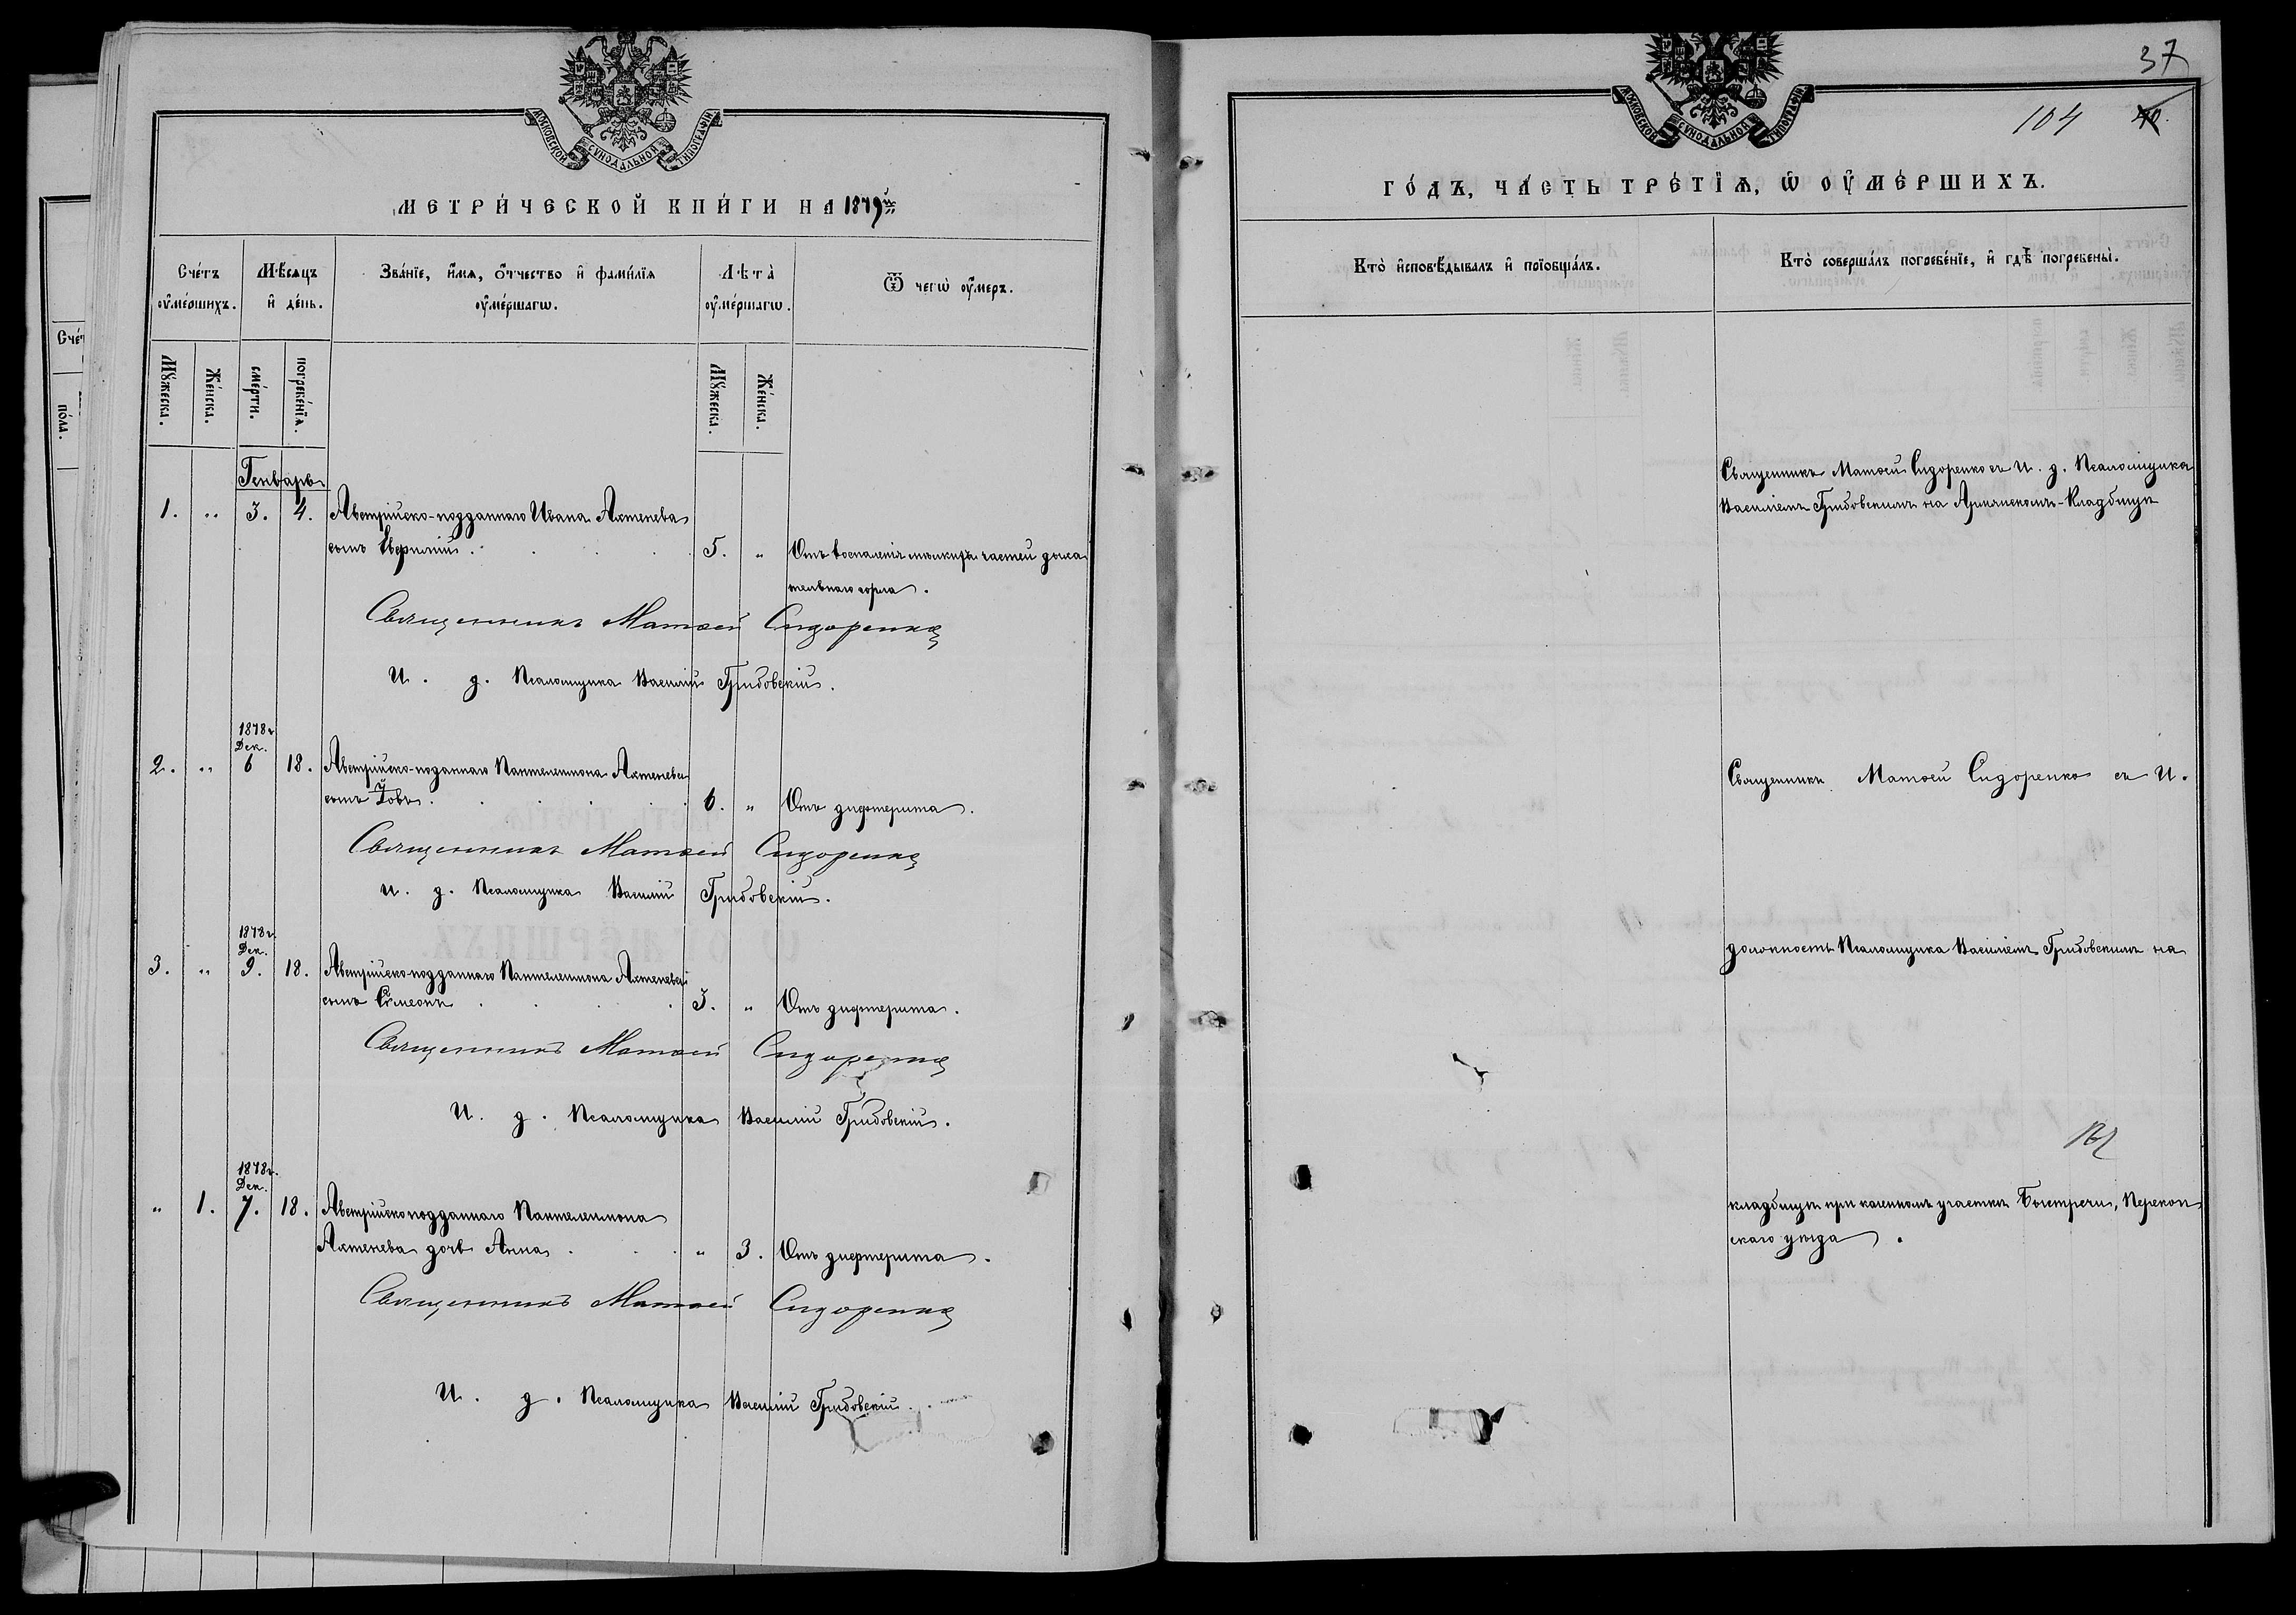 МОСКОВСКОЙ СУНОДАЛЬНОЙ ТИПОГРАФІИ
МЕТРИ́ЧЕСКОЙ КНИ́ГИ НА 1879й
Сче́тъ оу҆ме́ршихъ.
Мѣ́сяцъ и҆ де́нь.
Зва́нїе, и҆́мя, ѻ҆́тчество и҆ фами́лїя оу҆ме́ршагѡ.
Лѣта̀ оу҆ме́ршагѡ.
Ѿ чегѡ̀ оу҆́меръ.
Мꙋ́жеска.
Же́нска.
сме́рти.
погребе́нїя.
Мꙋ́жеска.
Же́нска.
Генварь
1. „ 3. 4. Австрійско-подданнаго Ивана Ахтенева
сынъ 5. „ Отъ воспаленія мягкихъ частей дыха
тельнаго горла.
Священникъ Матѳей Сидоренко
И. д. Псаломщика Василій Грибовскій.
1878 г.
Дек.
2. „ 6 18. Австрійско-поданнаго Пантелеимона Ахтенева
сынъ Іовъ. 6. „ Отъ дифтерита.
Священникъ Матѳей Сидоренко
и. д. Псаломщика Василій Грибовскій.
1878 г.
Дек.
3. „ 9. 18. Австрійско-подданнаго Пантелеимона Ахтенева
сынъ Сѵмеонъ 3. „ Отъ дифтерита.
Священникъ Матѳей Сидоренко
И. д. Псаломщика Василій Грибовскій.
1878 г.
Дек.
„ 1. 7. 18. Австрійскоподданнаго Пантелеимона
Ахтенева дочь Анна. „ 3. Отъ дифтерита.
Священникъ Матѳей Сидоренко
И. д. Псаломщика Василій Грибовскій.
Сче́т
по́ла.
МОСКОВСКОЙ СУНОДАЛЬНОЙ ТИПОГРАФІИ
37
104
40.
ГО́ДЪ, ЧА́СТЬ ТРЕ́ТЇѦ, Ѡ҆ ОУ҆МЕ́РШИХЪ.
Кто̀ и҆сповѣ́дывалъ и҆ прїобща́лъ.
Кто̀ соверша́лъ погребе́нїе, и҆ гдѣ̀ погребены̀.
Священникъ Матѳей Сидоренко съ И. д. Псаломщика
Василіемъ Грибовскимъ на Армянскомъ-Кладбищѣ
Священникъ Матѳей Сидоренко съ И.
должность Псаломщика Василіемъ Грибовскимъ на
кладбищѣ при казенномъ участкѣ Перекоп
скаго уѣзда.